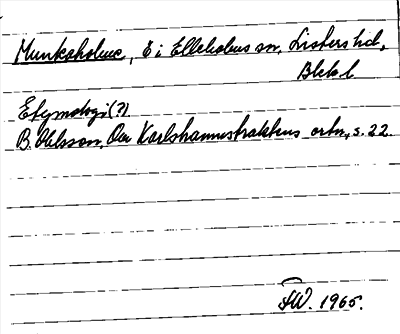 Munkaholme, E i Elleholms sn, Listers hd,
Blek l
Etymologi (?)
B. Ohlsson, Om Karlshamnstraktens ortn, s. 22.
FW. 1965.